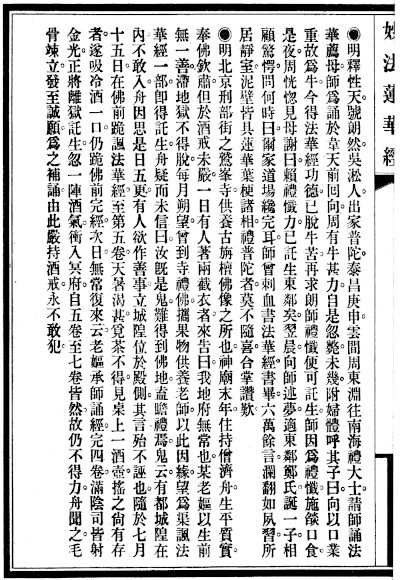 妙法蓮華經
●明釋性天號朗然吳淞人出家普陀泰昌庚申雲間周東淵往南海禮大士請師誦法
華薦母師爲誦於韋天前回向周有牛甚力自是忽斃未幾附婦體呼其子曰向以口業
重故爲牛今得法華經功德已脫牛苦再求朗師禮懺便可託生師因爲禮懺施燄口食
是夜周恍惚見母謝曰賴禮懺力已託生東鄰矣翌晨向師述夢適東鄰鄭氏誕一子相
顧驚愕問何時曰爾家道場纔完耳師曾刺血書法華經書畢六萬餘言瀾翻如夙習所
居靜室泥壁皆具蓮華葉梗諸相禮普陀者莫不隨喜合掌讚歎
●明北京刑部街之鷲峯寺供養古旃檀佛像之所也神廟末年住持僧濟舟生平質實
奉佛欽肅但於酒戒未嚴一日有人著兩截衣者來告曰我地府無常也某老嫗以生前
無一善滯地獄不得脫每月朔望曾到寺禮佛攜果物供養老師以此因緣望爲渠諷法
華經一部即得託生舟疑而未信曰汝旣是鬼難得到佛地盍瞻禮焉鬼云有都城隍在
內不敢入舟因思是日五更有人欲作善事立城隍位於殿側其言殆不誣也隨於七月
十五日在佛前跪諷法華經至第五卷天暑渴甚覓茶不得見桌上一酒壺搖之尙有存
者遂吸冷酒一口仍跪佛前完經次日無常復來云老嫗承師誦經完四卷滿陰司皆射
金光正將離獄託生忽一陣酒氣衝入冥府自五卷至七卷皆然故仍不得力舟聞之毛
骨竦立發至誠願爲之補誦由此嚴持酒戒永不敢犯